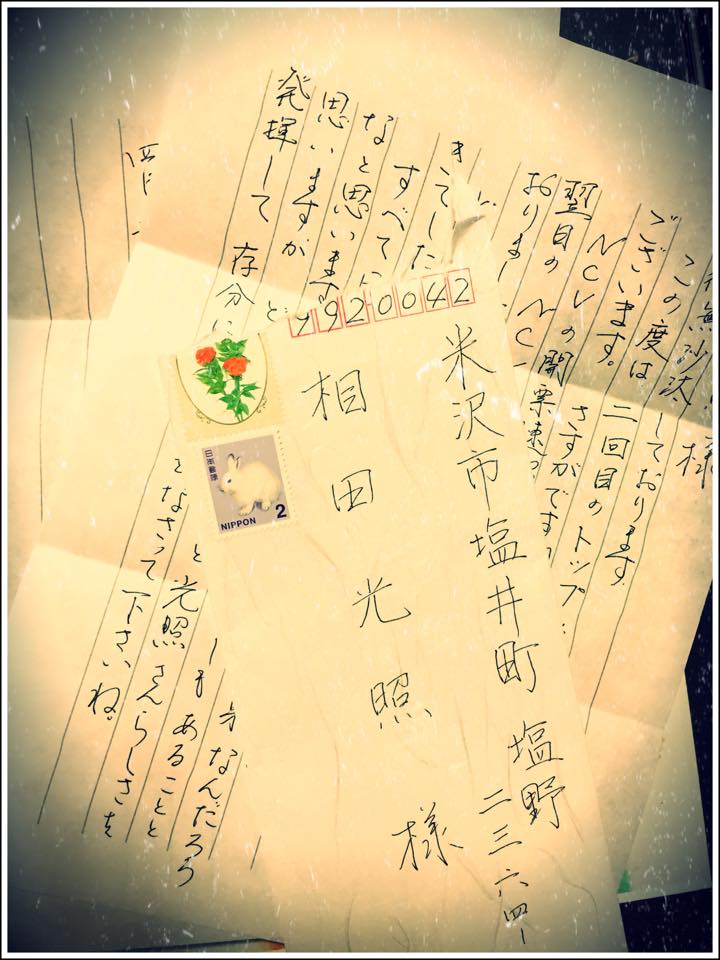 無沙汰
しております
この度は 二回目のトップ
ございます。さすがです
NCVの開票速
翌日のNC
おりまし
きてした
すべてに
なと思いま
思いますが
発揮して 存分に
なんだろう
あることと
と光照さんらしさを
なさって下さいね。
9920042
米沢市塩井町塩野
二三六四ー
相田光照様
日本郵便
NIPPON
2